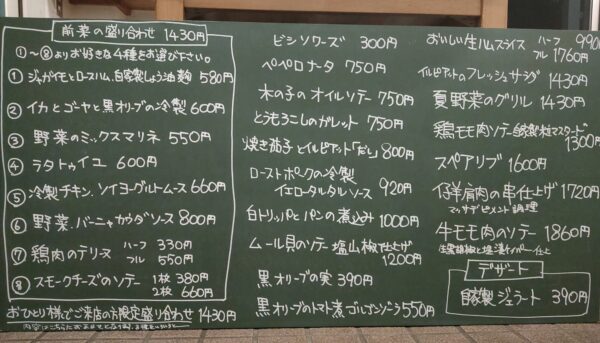 前菜の盛り合わせ 1430円
①〜⑧よりお好きな4種をお選び下さい。
① ジャガイモとロースハム、自家製しょう油麹 580円
② イカとゴーヤと黒オリーブの冷製 600円
③ 野菜のミックスマリネ 550円
④ ラタトゥイユ 600円
⑤ 冷製チキン、ソイヨーグルトムース 660円
⑥ 野菜、バーニャカウダソース 800円
⑦ 鶏肉のテリーヌ ハーフ 330円
フル 550円
⑧ スモークチーズのソテー 1枚 380円
2枚 660円
おひとり様でご来店の方限定盛り合わせ 1430円
ビシソワーズ 300円
ペペロナータ 750円
木の子のオイルソテー 750円
とうもろこしのガレット 750円
焼き茄子とイルピアット「だし」 800円
ローストポークの冷製
イエロータルタルソース 920円
白トリッパとパンの煮込み 1000円
ムール貝のソテー 塩山椒仕上げ
1200円
黒オリーブの実 390円
黒オリーブのトマト煮ゴルゴンゾーラ 550円
おいしい生ハムスライス ハーフ 990
フル 1760円
イルピアットのフレッシュサラダ 1430円
夏野菜のグリル 1430円
鶏モモ肉ソテー自家製粒マスタード
1300円
スペアリブ 1600円
仔羊肩肉の串仕上げ 1720円
マッサデピメント調理
牛モモ肉のソテー 1860円
生黒胡椒と塩漬ケッパー仕上
デザート
自家製ジェラート 390円